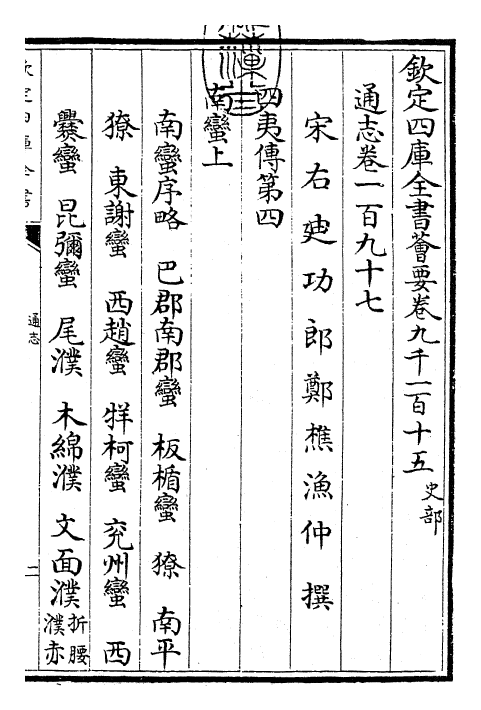 欽定四庫全書薈要卷九千一百十五 史部
通志卷一百九十七
宋右廸功郎鄭樵漁仲撰
四夷傳第四
南蠻上
南蠻序略 巴郡南郡蠻 板楯蠻 獠 南平
獠 東謝蠻 西趙蠻 牂柯蠻 兖州蠻 西
爨蠻 昆彌蠻 尾濮 木綿濮 文面濮 折腰
濮赤
欽定四庫全書
通志
二